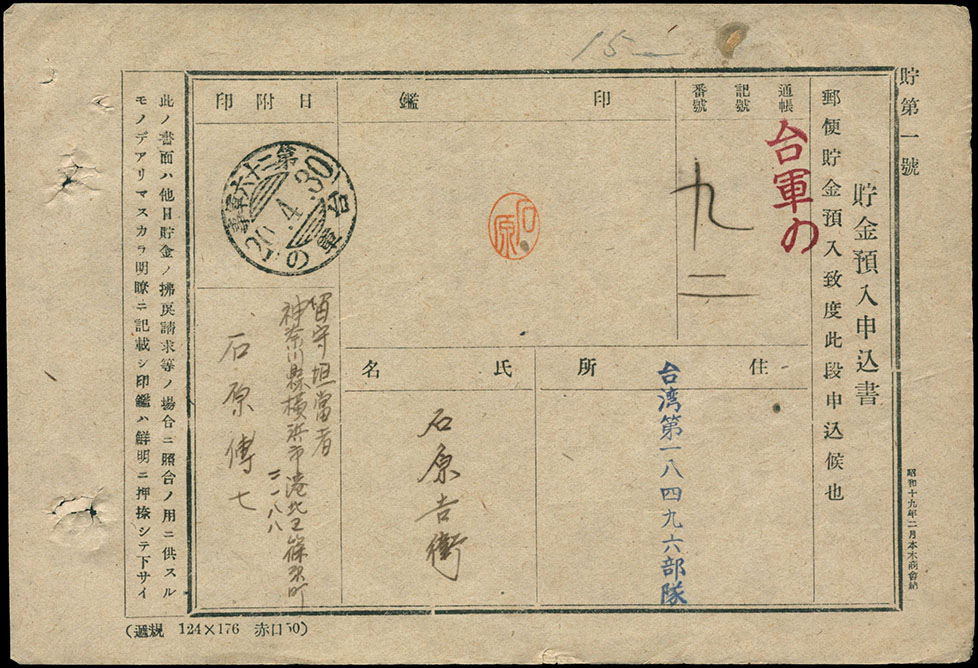 貯第一號
貯金預入申込書
郵便貯金預入致度此段申込候也
昭和十九年二月本木商會納
通帳
記號
番號
台軍の
九一二
印鑑
石原
住所
台湾第一八四九六部隊
氏名
石原吉衛
日附印
第二十六軍事
20.4.30
台軍の
留守担當者
神奈川縣横浜市港北区篠原町
二一八八
石原傳七
此ノ書面ハ他日貯金ノ拂戻請求等ノ場合ニ照合ノ用ニ供スル
モノデアリマスカラ明瞭ニ記載シ印鑑ハ鮮明ニ押捺シテ下サイ
124×176 赤口50)
15